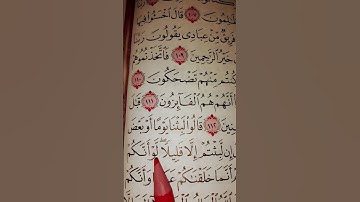 ظَٰلِمُونَ ١٠٧ قَالَ ٱخْسَـُٔوا۟ فِيهَا
فَرِيقٌ مِّنْ عِبَادِى يَقُولُونَ رَبَّنَا
خَيْرُ ٱلرَّٰحِمِينَ ١٠٩ فَٱتَّخَذْتُمُوهُمْ
كُنتُم مِّنْهُمْ تَضْحَكُونَ ١١٠
أَنَّهُمْ هُمُ ٱلْفَآئِزُونَ ١١١ قَٰلَ
نِينَ ١١٢ قَالُوا۟ لَبِثْنَا يَوْمًا أَوْ بَعْضَ
إِن لَّبِثْتُمْ إِلَّا قَلِيلًا ۖ لَّوْ أَنَّكُمْ
أَنَّمَا خَلَقْنَٰكُمْ وَأَنَّكُمْ